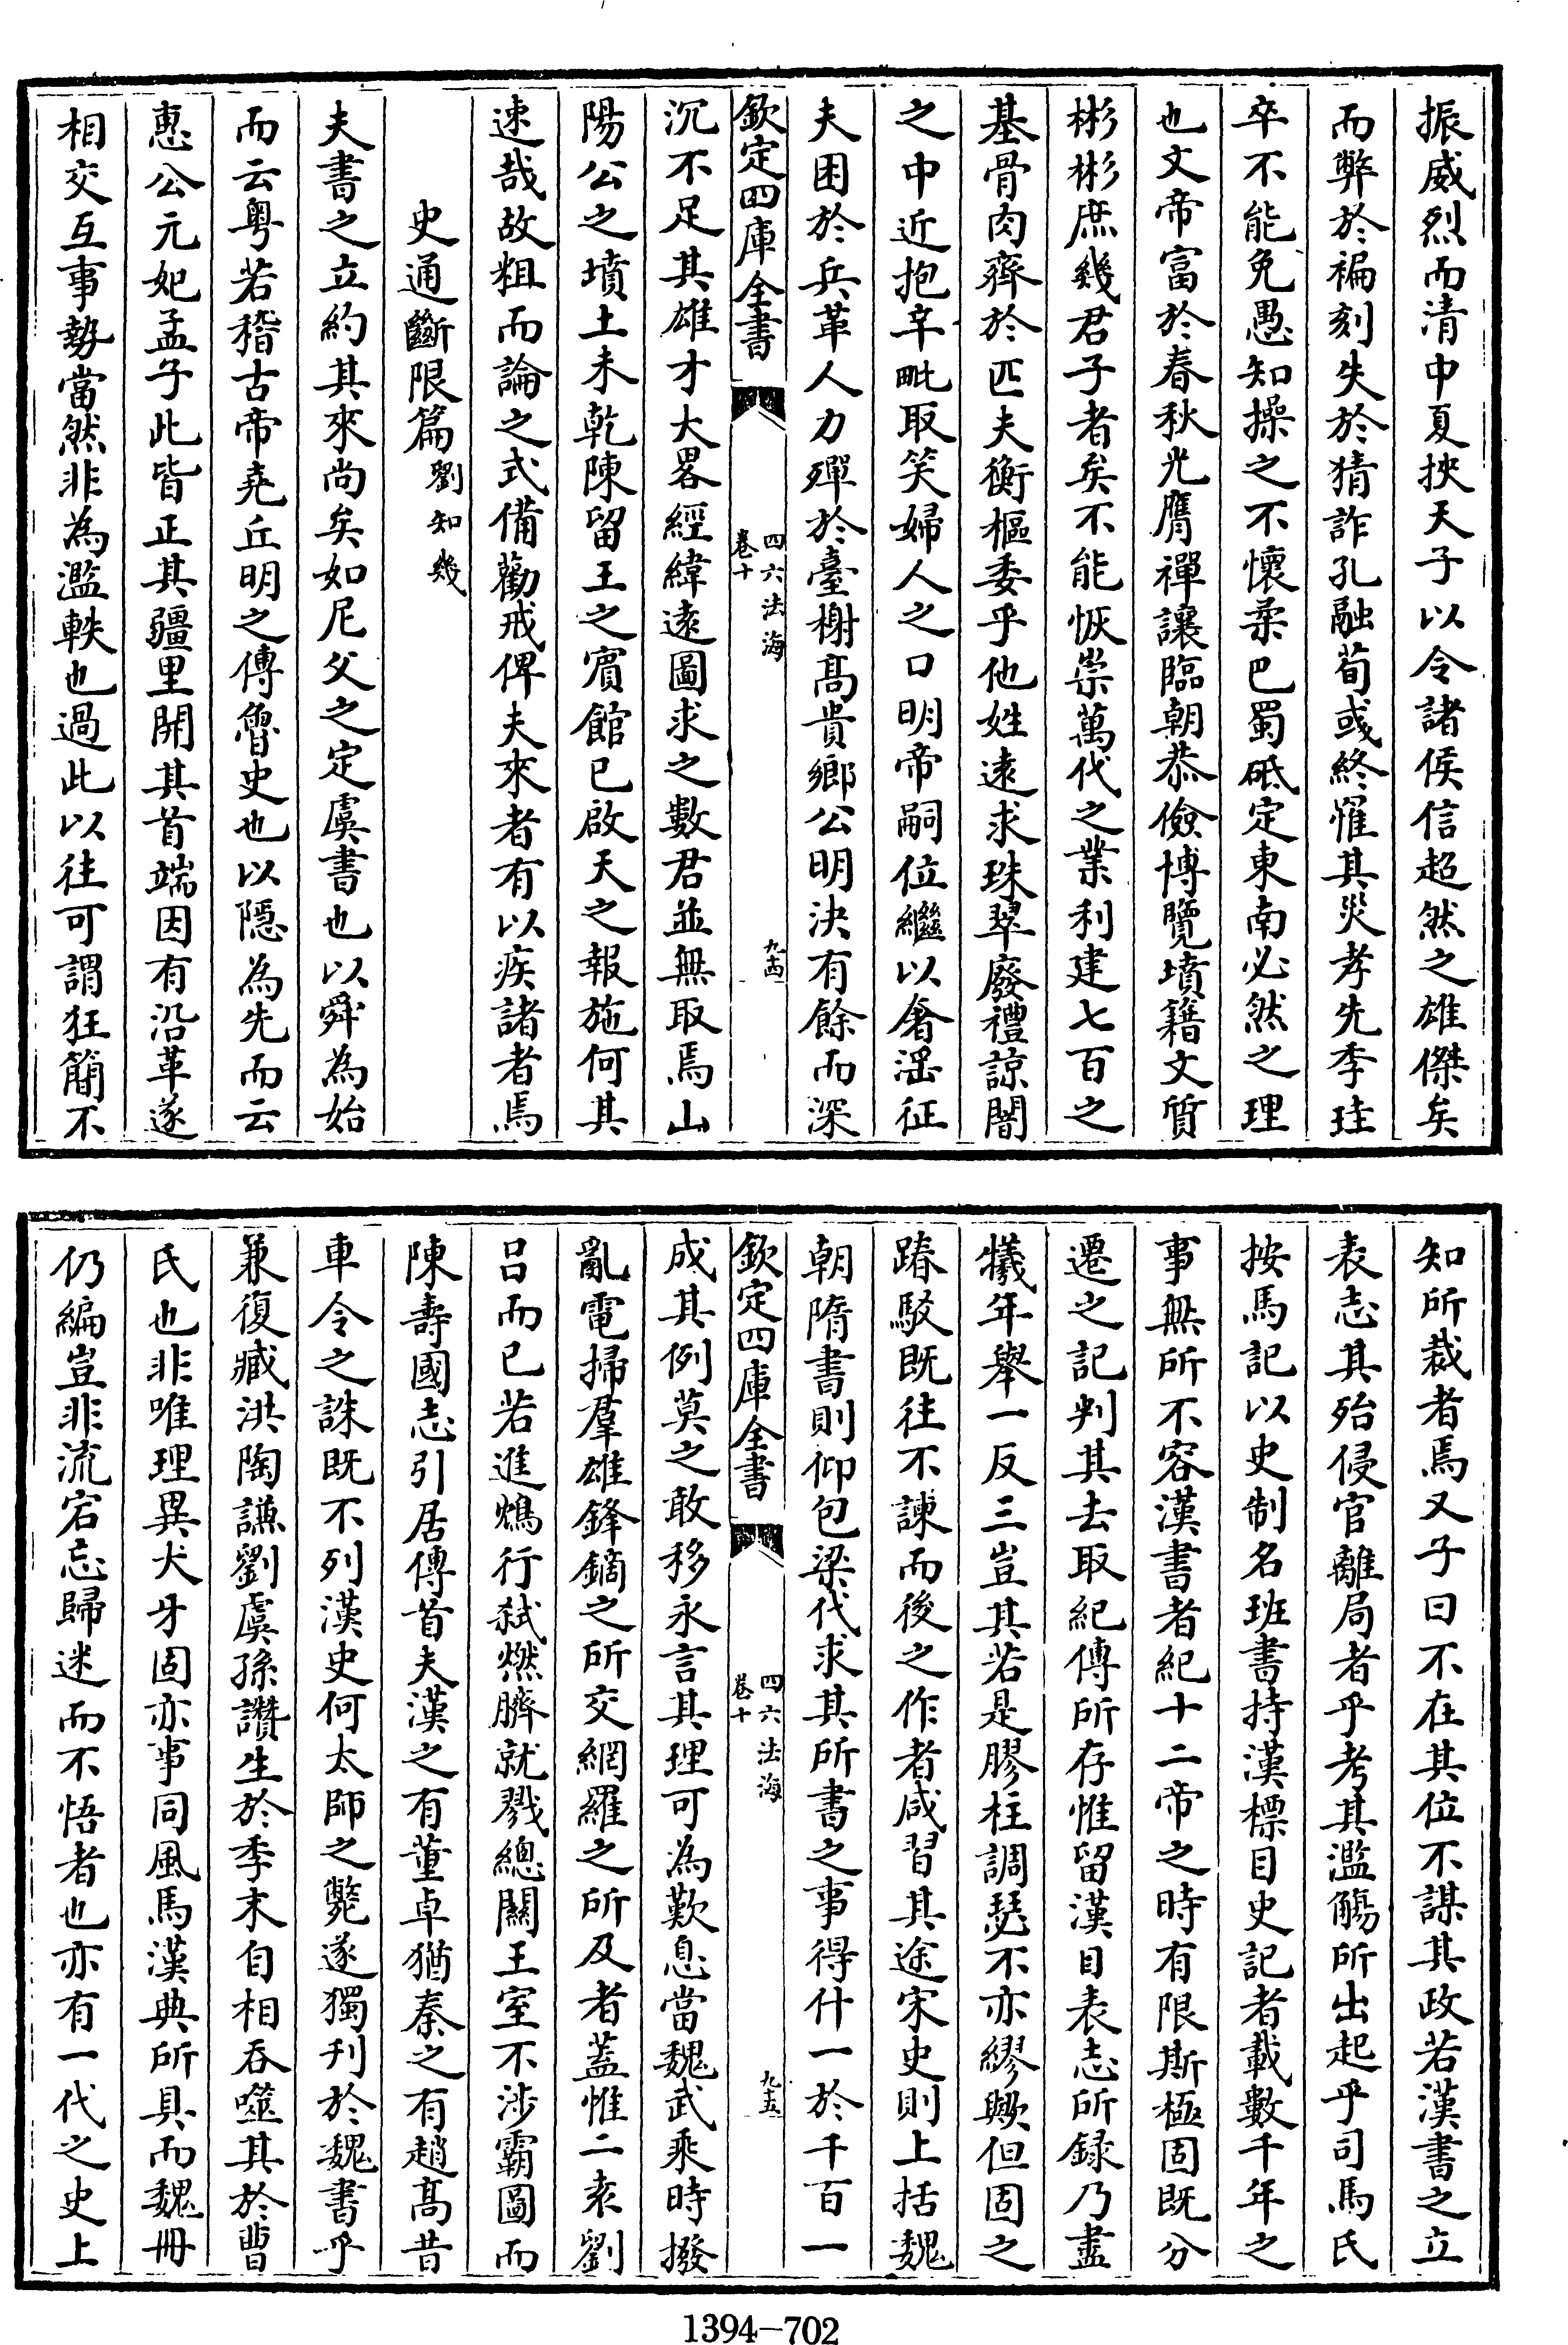 振威烈而清中夏挾天子以令諸侯信超然之雄傑矣
而弊於褊刻失於猜詐孔融荀彧終罹其災孝先季珪
卒不能免愚知操之不懷柔巴蜀砥定東南必然之理
也文帝富於春秋光膺禪讓臨朝恭儉博覽墳籍文質
彬彬庶幾君子者矣不能恢崇萬代之業利建七百之
基骨肉齊於匹夫衡樞委乎他姓遠求珠翠廢禮諒闇
之中近抱辛毗取笑婦人之口明帝嗣位繼以奢淫征
夫困於兵革人力殫於臺榭髙貴鄉公明決有餘而深
欽定四庫全書
四六法海
卷十
九十四
沉不足其雄才大畧經緯逺圖求之數君並無取焉山
陽公之墳土未乾陳留王之賓館已啟天之報施何其
速哉故粗而論之式備勸戒俾夫來者有以疾諸者焉
史通斷限篇 劉知幾
夫書之立約其來尚矣如尼父之定虞書也以舜為始
而云粵若稽古帝堯丘明之傳魯史也以隠為先而云
惠公元妃孟子此皆正其疆里開其首端因有沿革遂
相交互事勢當然非為濫軼也過此以往可謂狂簡不
知所裁者焉又子曰不在其位不謀其政若漢書之立
表志其殆侵官離局者乎考其濫觴所出起乎司馬氏
按馬記以史制名班書持漢標目史記者載數千年之
事無所不容漢書者紀十二帝之時有限斯極固既分
遷之記判其去取紀傳所存惟留漢目表志所録乃盡
犧年舉一反三豈其若是膠柱調瑟不亦繆歟但固之
踳駁既往不諫而後之作者咸習其途宋史則上括魏
朝隋書則仰包梁代求其所書之事得什一於千百一
欽定四庫全書
四六法海
卷十
九十五
成其例莫之敢移永言其理可為歎息當魏武乘時撥
亂電掃羣雄鋒鏑之所交網羅之所及者蓋惟二袁劉
吕而已若進鴆行弑燃臍就戮總關王室不涉霸圖而
陳壽國志引居傳首夫漢之有董卓猶秦之有趙髙昔
車令之誅既不列漢史何太師之斃遂獨刋於魏書乎
兼復臧洪陶謙劉虞孫讚生於季末自相吞噬其於曹
氏也非唯理異犬牙固亦事同風馬漢典所具而魏冊
仍編豈非流宕忘歸迷而不悟者也亦有一代之史上
1394—702